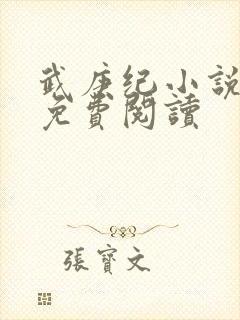 武庚纪小說
免費閱讀
張寶文